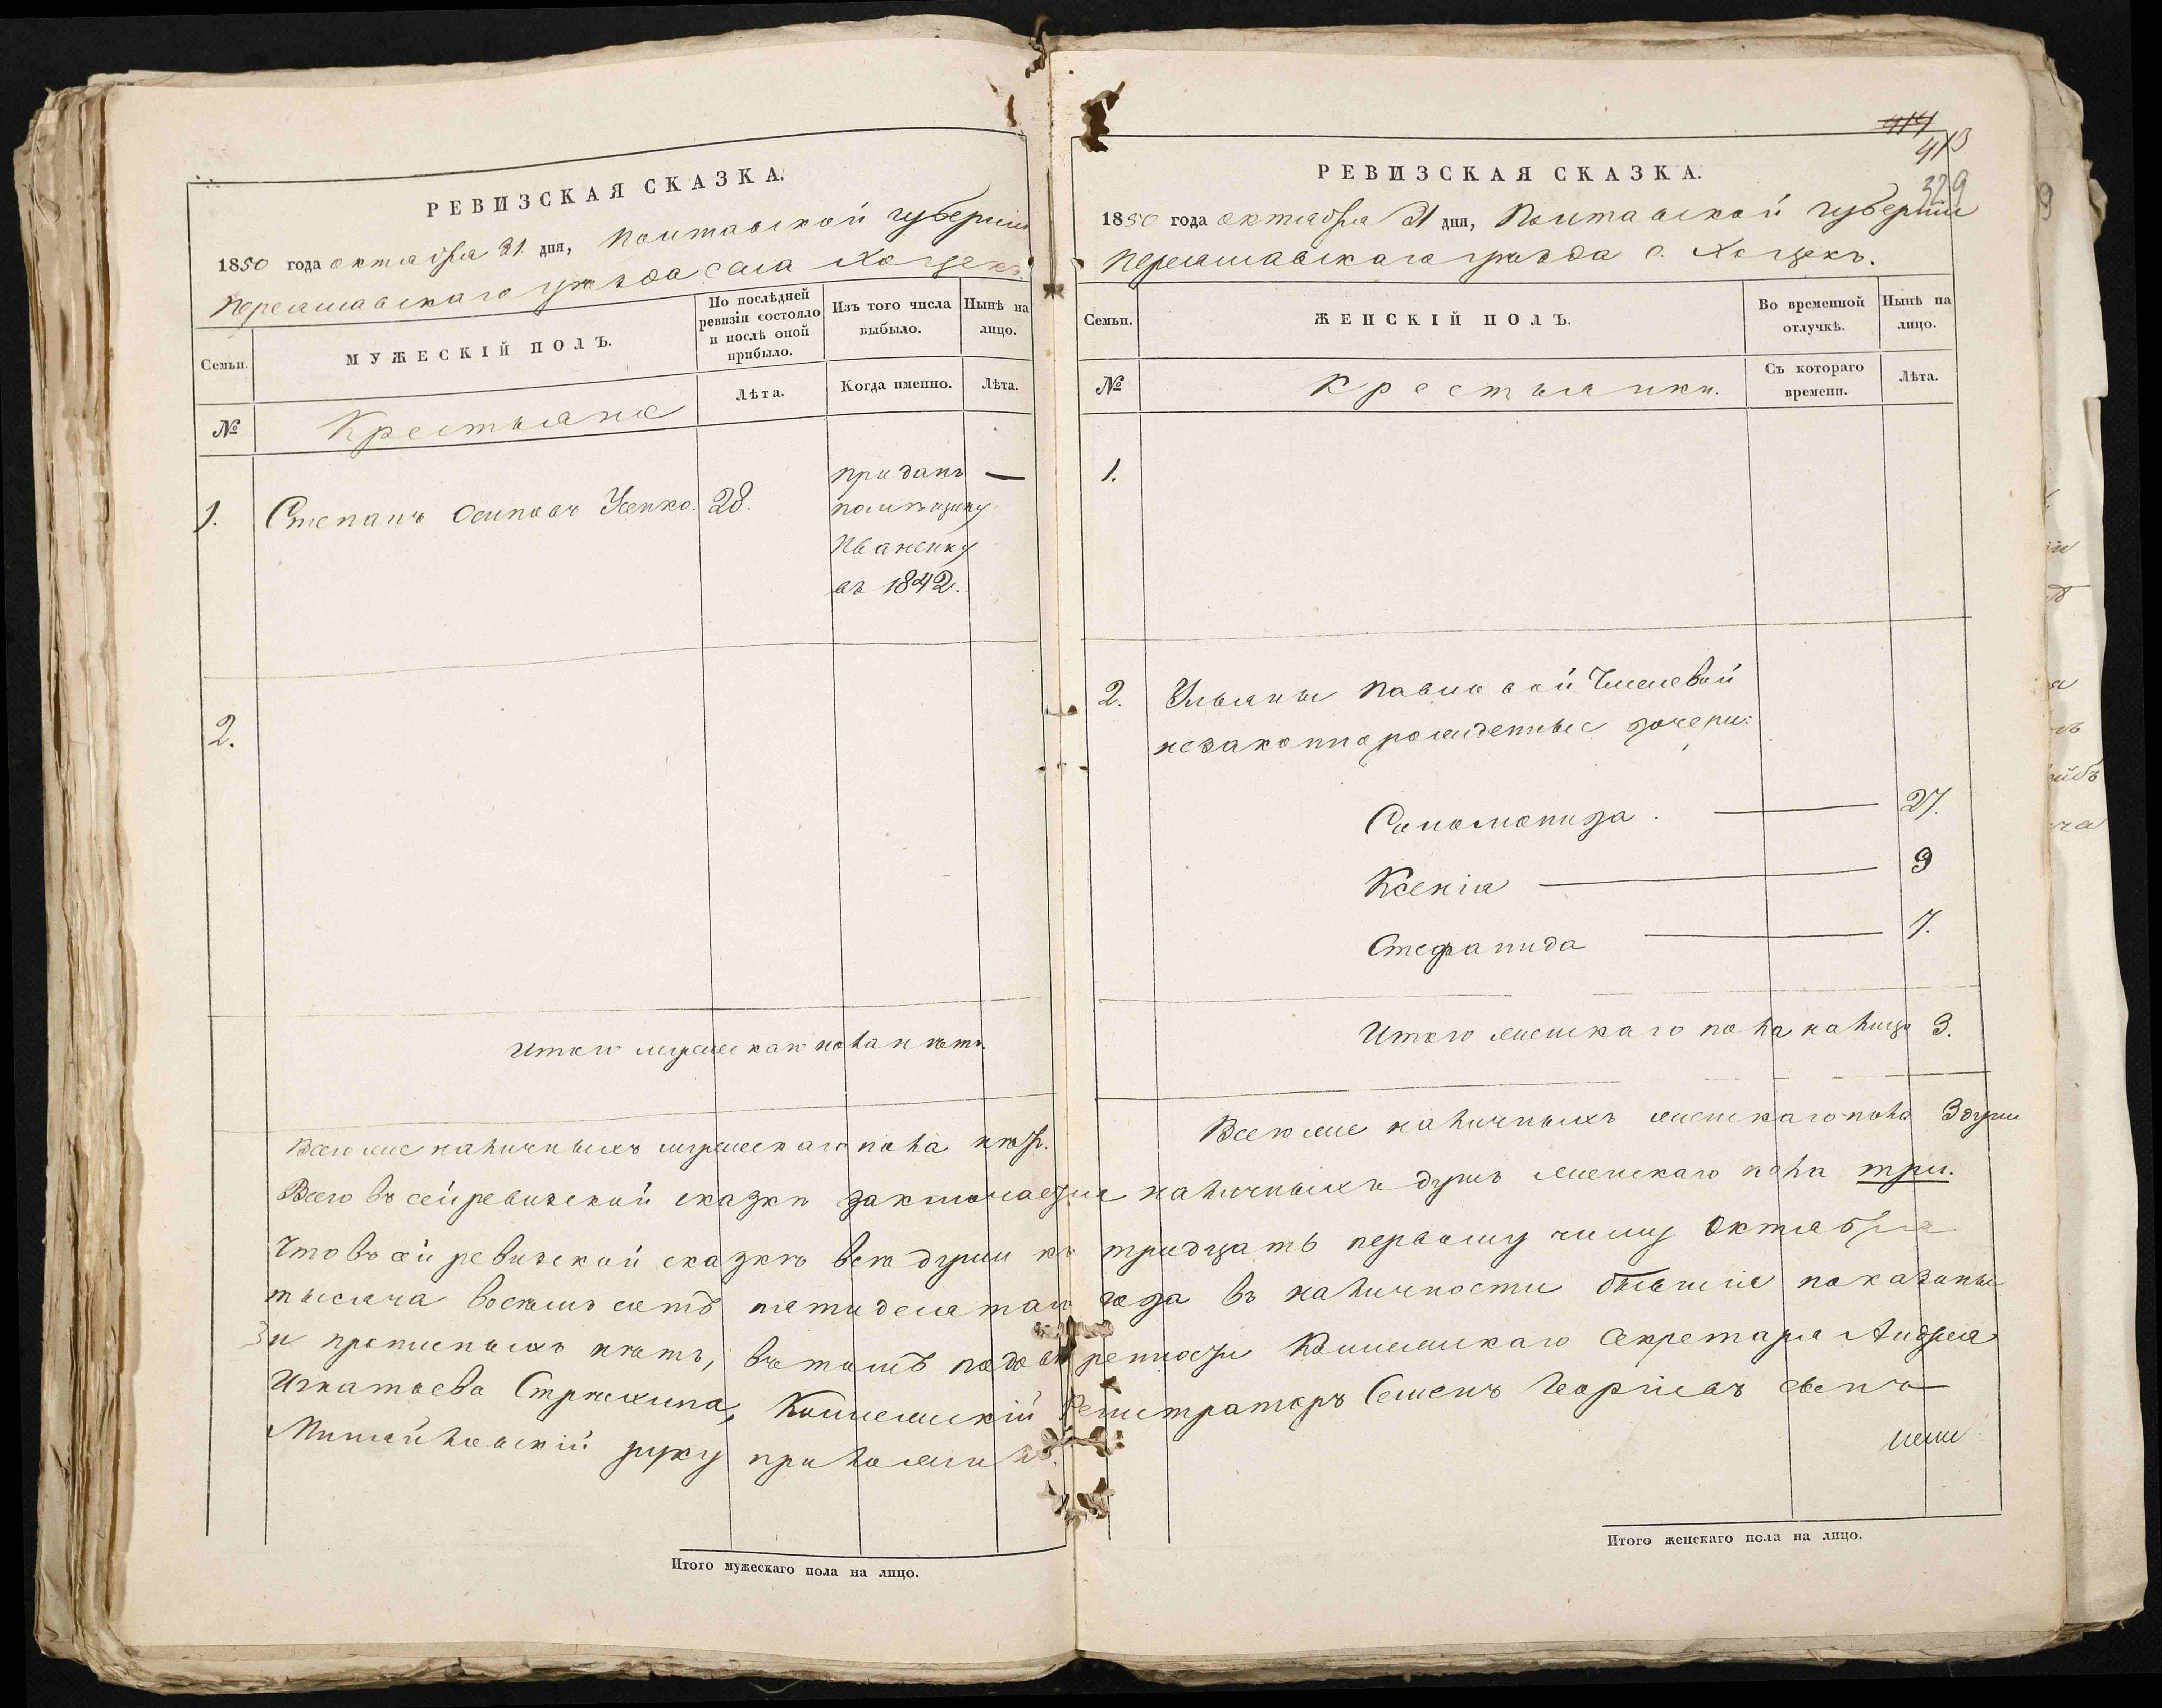 РЕВИЗСКАЯ СКАЗКА.
1850 года октября 31 дня, Полтавской губернии
Переяславскаго уѣзда села Хоцекъ.
Семьи.
МУЖЕСКІЙ ПОЛЪ.
По послѣдней ревизіи состояло и послѣ оной прибыло.
Изъ того числа выбыло.
Нынѣ на лицо.
№
Крестьяне
Лѣта.
Когда именно.
Лѣта.
1. Степанъ Осиповъ Усенко. 28.
приданъ —
помѣщику
Иваненку
въ 1842.
2.
Итого мужескаго пола нѣтъ.
Всего же наличныхъ мужескаго пола нѣтъ.
414
413
329
РЕВИЗСКАЯ СКАЗКА.
1850 года октября 31 дня, Полтавской губерніи
Переяславскаго уѣзда с. Хоцекъ.
Семьи.
ЖЕНСКІЙ ПОЛЪ.
Во временной отлучкѣ.
Нынѣ на лицо.
№
Крестьянки.
Съ котораго времени.
Лѣта.
1.
2. Ульяны Павловой
незаконнорожденные дочери:
Соломонида. — 27.
Ксенія — 9
Стефанида — 7.
Итого женскаго пола налицо 3.
Всего же наличныхъ женскаго пола 3 души
Всего въ сей ревизской сказкѣ заключается наличныхъ душъ женскаго пола три.
Что въ сей ревизской сказкѣ все души къ тридцать первому числу Октября
тысяча восемь сотъ пятидесятаго года въ наличности бывшіе показаны
и прописныхъ нѣтъ, въ томъ по довѣренности Коллежскаго Секретаря Андрея
Игнатьева, Коллежскій Регистраторъ Семенъ
руку приложилъ.
Итого мужескаго пола на лицо.
Итого женскаго пола на лицо.